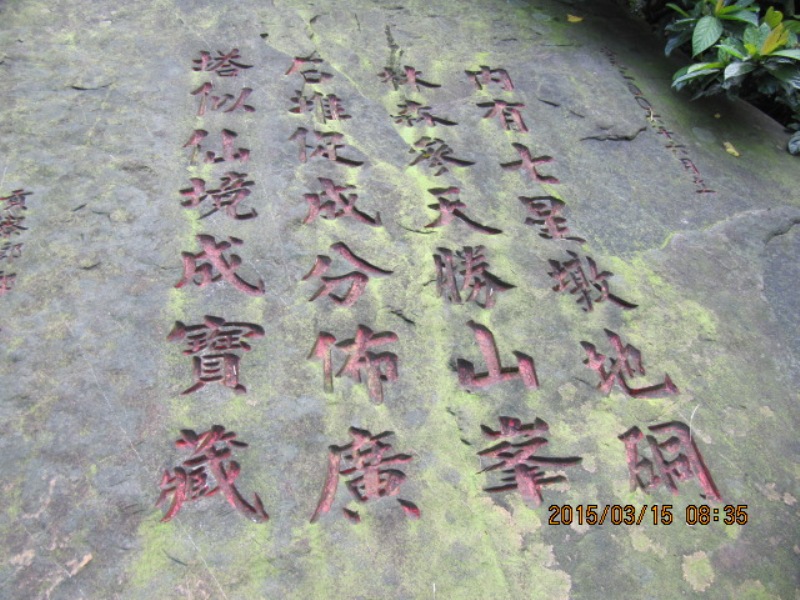 內有七星墩地硐
林森參天勝山峯
石堆促成分佈廣
塔似仙境成寶藏
2015/03/15 08:35